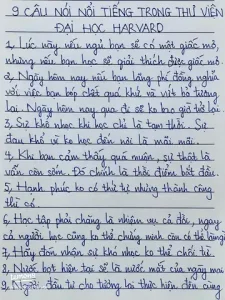 9 CÂU NÓI NỔI TIẾNG TRONG THƯ VIỆN
ĐẠI HỌC HARVARD
1, Lúc này nếu ngủ bạn sẽ có một giấc mơ,
nhưng nếu bạn học sẽ giải thích được giấc mơ.
2, Ngày hôm nay nếu bạn lãng phí đồng nghĩa
với việc bạn bóp chết quá khứ và vứt bỏ tương
lai. Ngày hôm nay qua đi sẽ ko bao giờ trở lại
3, Sự khó nhọc khi học chỉ là tạm thời. Sự
đau khổ vì ko học đến nơi là mãi mãi.
4, Khi bạn cảm thấy quá muộn, sự thật là
vẫn còn sớm. Đó chính là thời điểm bắt đầu.
5, Hạnh phúc ko có thứ tự nhưng thành công
thì có.
6, Học tập phải chăng là nhiệm vụ cả đời, ngay
cả người học cũng ko thể chứng minh còn có thể
7, Hãy đón nhận sự khó nhọc ko thể chối từ.
8, Nước bọt hiện tại sẽ là nước mắt của ngày mai
9, Người đầu tư cho tương lai thực hiện đến cùng